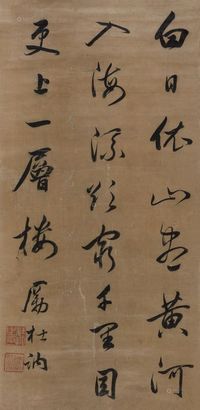 白日依山盡黃河
入海流欲窮千里目
更上一層樓 勵杜訥